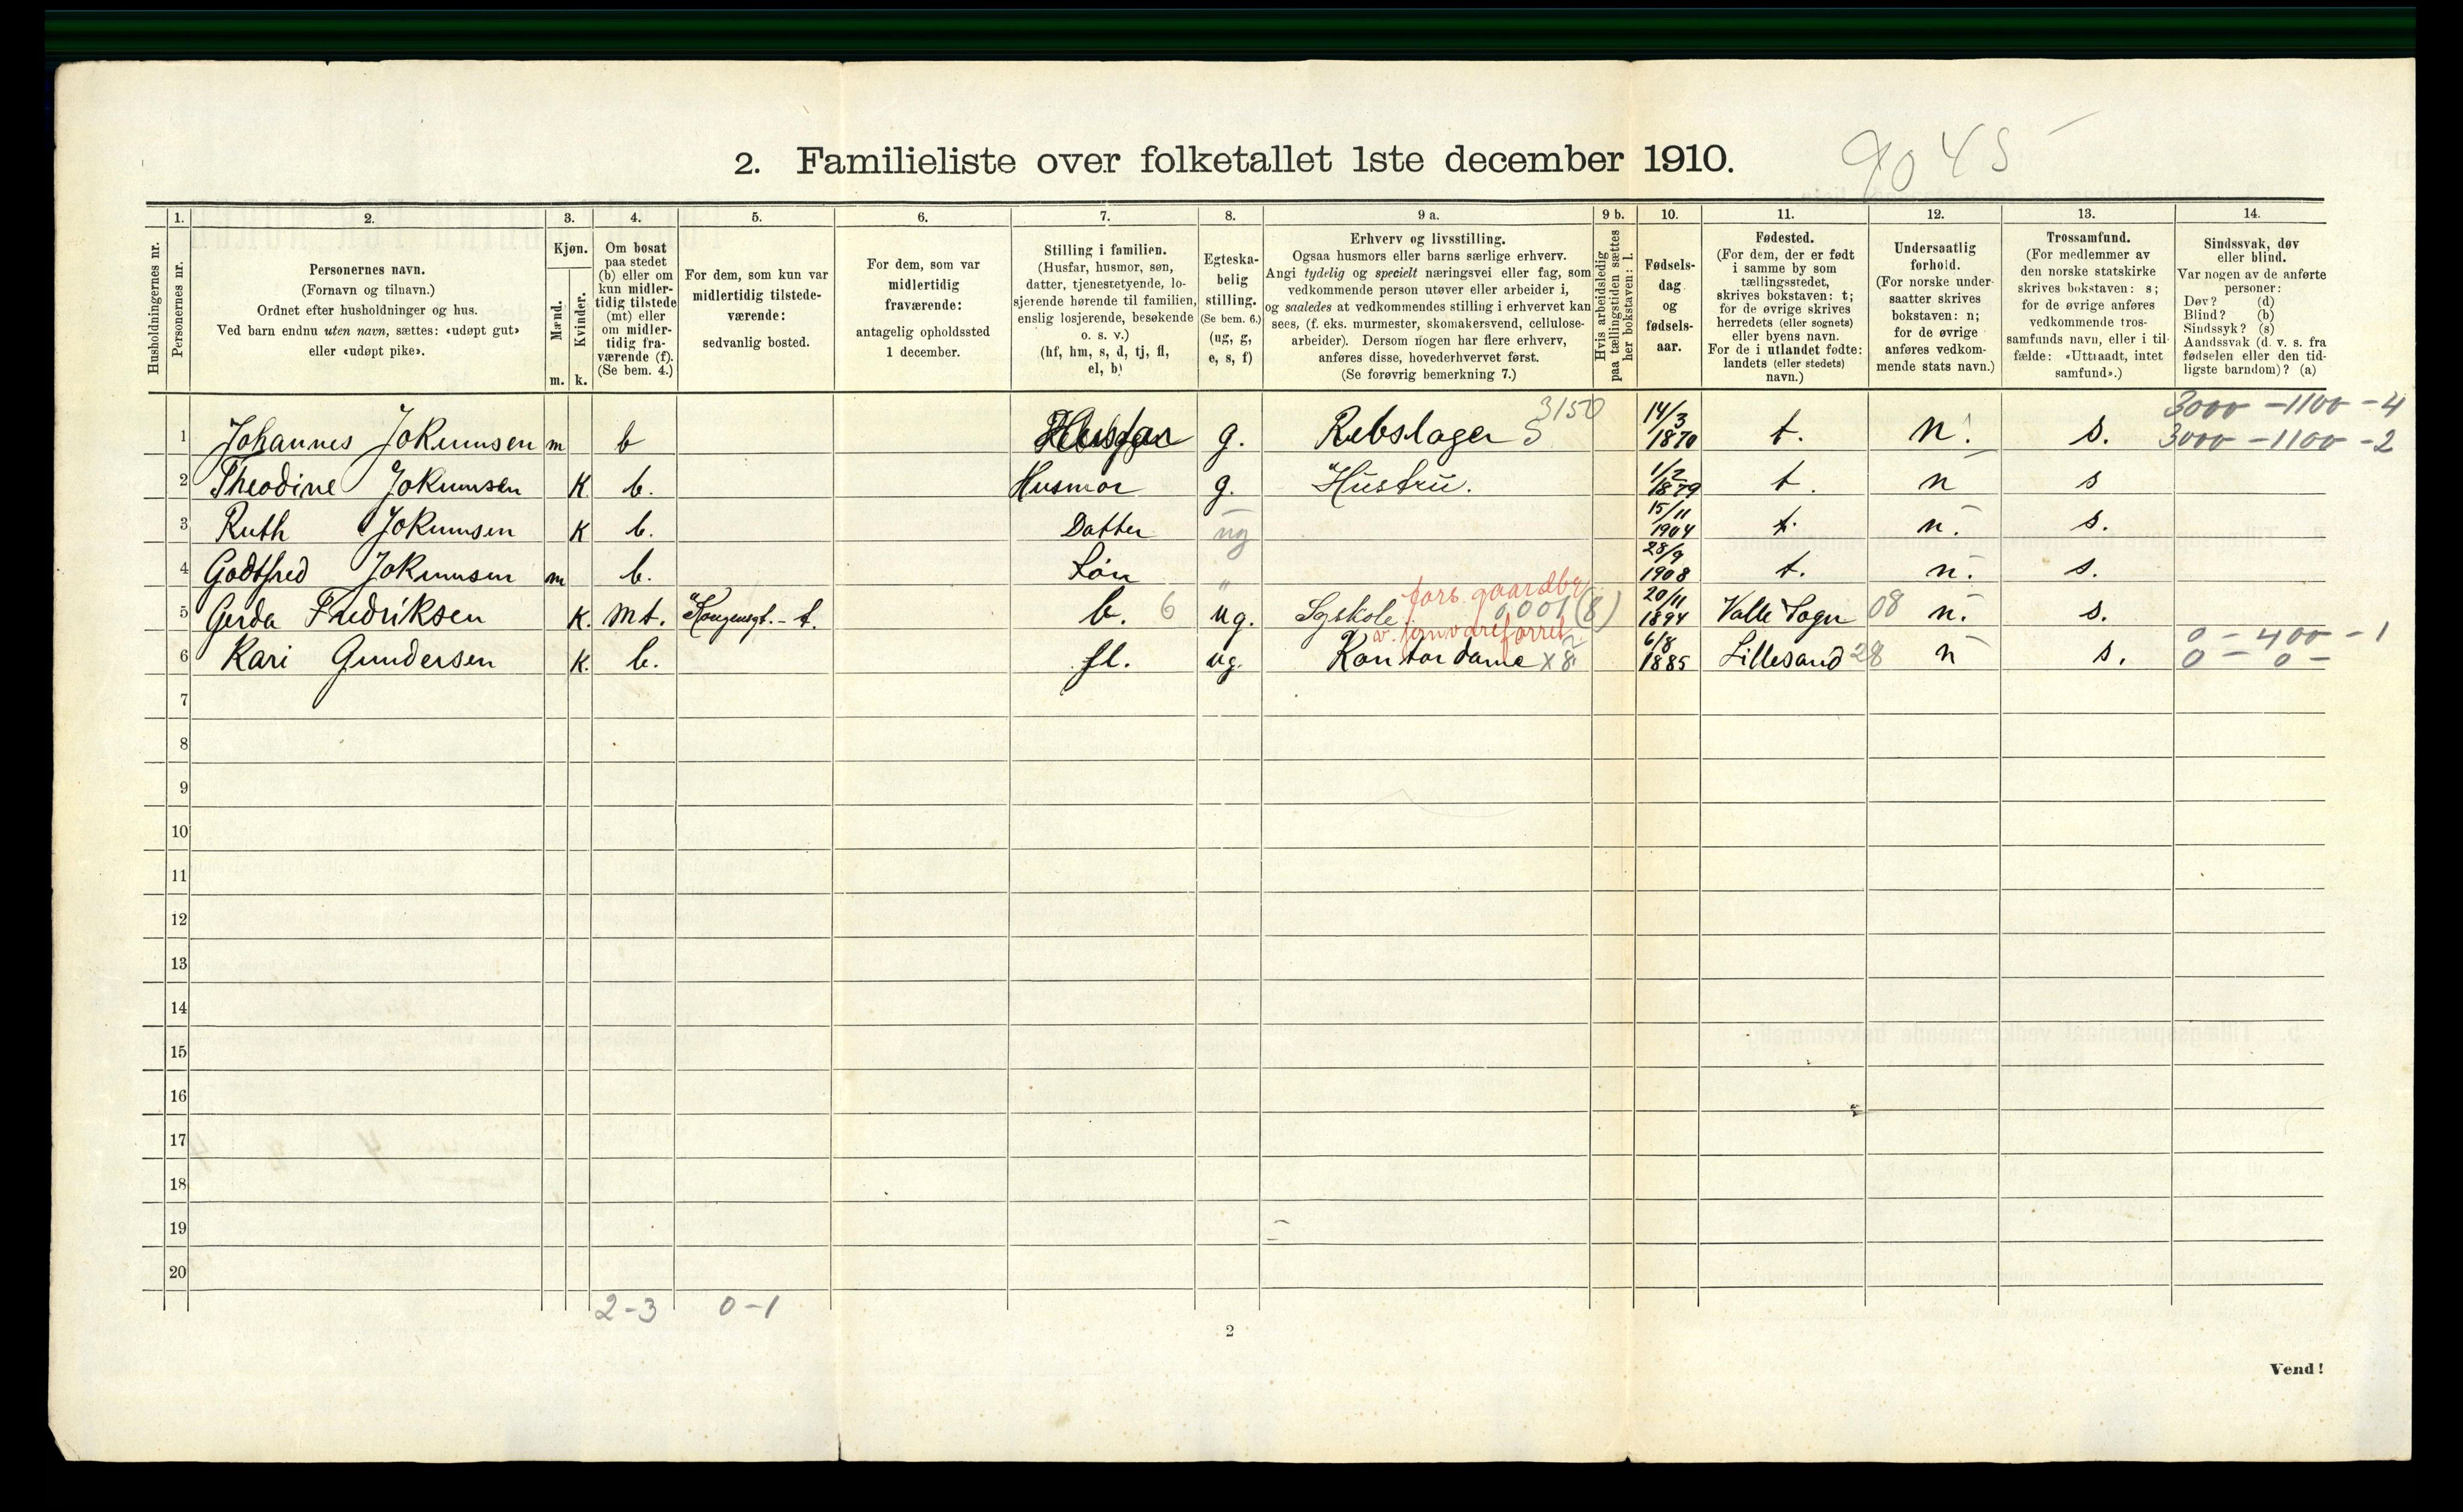 2. Familieliste over folketallet 1ste december 1910.
9045
Husholdningernes nr.
1.
Personernes nr.
2.
Personernes navn.
(Fornavn og tilnavn.)
Ordnet efter husholdninger og hus.
Ved barn endnu uten navn, sættes: «udøpt gut»
eller «udøpt pike».
3.
Kjøn.
Mænd.
Kvinder.
m.
k.
4.
Om bosat
paa stedet
(b) eller om
kun midler-
tidig tilstede
(mt) eller
om midler-
tidig fra-
værende (f).
(Se bem. 4.)
5.
For dem, som kun var
midlertidig tilstede-
værende:
sedvanlig bosted.
6.
For dem, som var
midlertidig
fraværende:
antagelig opholdssted
1 december.
7.
Stilling i familien.
(Husfar, husmor, søn,
datter, tjenestetyende, lo-
sjerende hørende til familien,
enslig losjerende, besøkende
o. s. v.)
(hf, hm, s, d, tj, fl,
el, b)
8.
Egteska-
belig
stilling.
(Se bem. 6.)
(ug, g,
e, s, f)
9 a.
Erhverv og livsstilling.
Ogsaa husmors eller barns særlige erhverv.
Angi tydelig og specielt næringsvei eller fag, som
vedkommende person utøver eller arbeider i,
og saaledes at vedkommendes stilling i erhvervet kan
sees, (f. eks. murmester, skomakersvend, cellulose-
arbeider). Dersom nogen har flere erhverv,
anføres disse, hovederhvervet først.
(Se forøvrig bemerkning 7.)
9 b.
Hvis arbeidsledig
paa tællingstiden sættes
her bokstaven: l.
10.
Fødsels-
dag
og
fødsels-
aar.
11.
Fødested.
(For dem, der er født
i samme by som
tællingsstedet,
skrives bokstaven: t;
for de øvrige skrives
herredets (eller sognets)
eller byens navn.
For de i utlandet fødte:
landets (eller stedets)
navn.)
12.
Undersaatlig
forhold.
(For norske under-
saatter skrives
bokstaven: n;
for de øvrige
anføres vedkom-
mende stats navn.)
13.
Trossamfund.
(For medlemmer av
den norske statskirke
skrives bokstaven: s;
for de øvrige anføres
vedkommende tros-
samfunds navn, eller i til-
fælde: «Uttraadt, intet
samfund».)
14.
Sindssvak, døv
eller blind.
Var nogen av de anførte
personer:
Døv? (d)
Blind? (b)
Sindssyk? (s)
Aandssvak (d. v. s. fra
fødselen eller den tid-
ligste barndom)? (a)
3150 3000 - 1100 - 4
1 Johannes Jokumsen m b Husfar g. Rebslager S 14/3 1870 t. n. s. 3000 - 1100 - 2
2 Theodine Jokumsen K. b. Husmor g. "Hustru. 1/2 1879 t. n s
3 Ruth Jokumsen K b. Datter ug 15/11 1904 t. n. s.
4 Godtfred Jokumsen m b. Søn " 28/9 1908 t. n. s.
fors. gaardbr
5 Gerda Fredriksen K. mt. Kongensgt. - t. b. 6 ug. Syskole 0001 (8) 20/11 1894 Valle Sogn 08 n. s.
av. jernvareforret. 0 - 400 - 1
6 Kari Gundersen K. b. fl. ug. Kontordame x 8 6/8 1885 Lillesand 28 n s. 0 - 0 -
7
8
9
10
11
12
13
14
15
16
17
18
19
20
2-3 0-1
2
Vend!